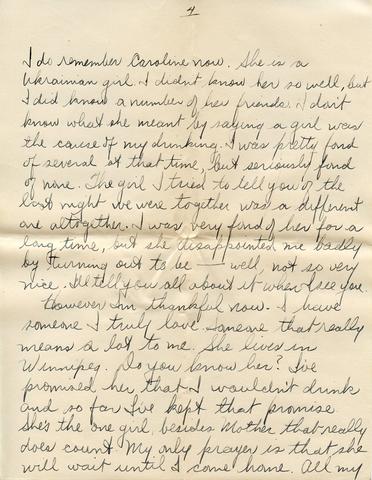 4
I do remember Caroline now. She is a
Ukrainian girl. I didn't know her so well, but
I did know a number of her friends. I don't
know what she meant by saying a girl was
the cause of my drinking. I was pretty fond
of several at that time, but seriously fond
of none. The girl I tried to tell you of the
last night we were together was a different
one altogether. I was very fond of her for a
long time, but she disappointed me badly
by turning out to be — well, not so very
nice. I'll tell you all about it when I see you.
However I'm thankful now. I have
someone I truly love. Someone that really
means a lot to me. She lives in
Winnipeg. Do you know her? I've
promised her that I wouldn't drink
and so far I've kept that promise.
She's the one girl, besides Mother that really
does count. My only prayer is that she
will wait until I come home. All my